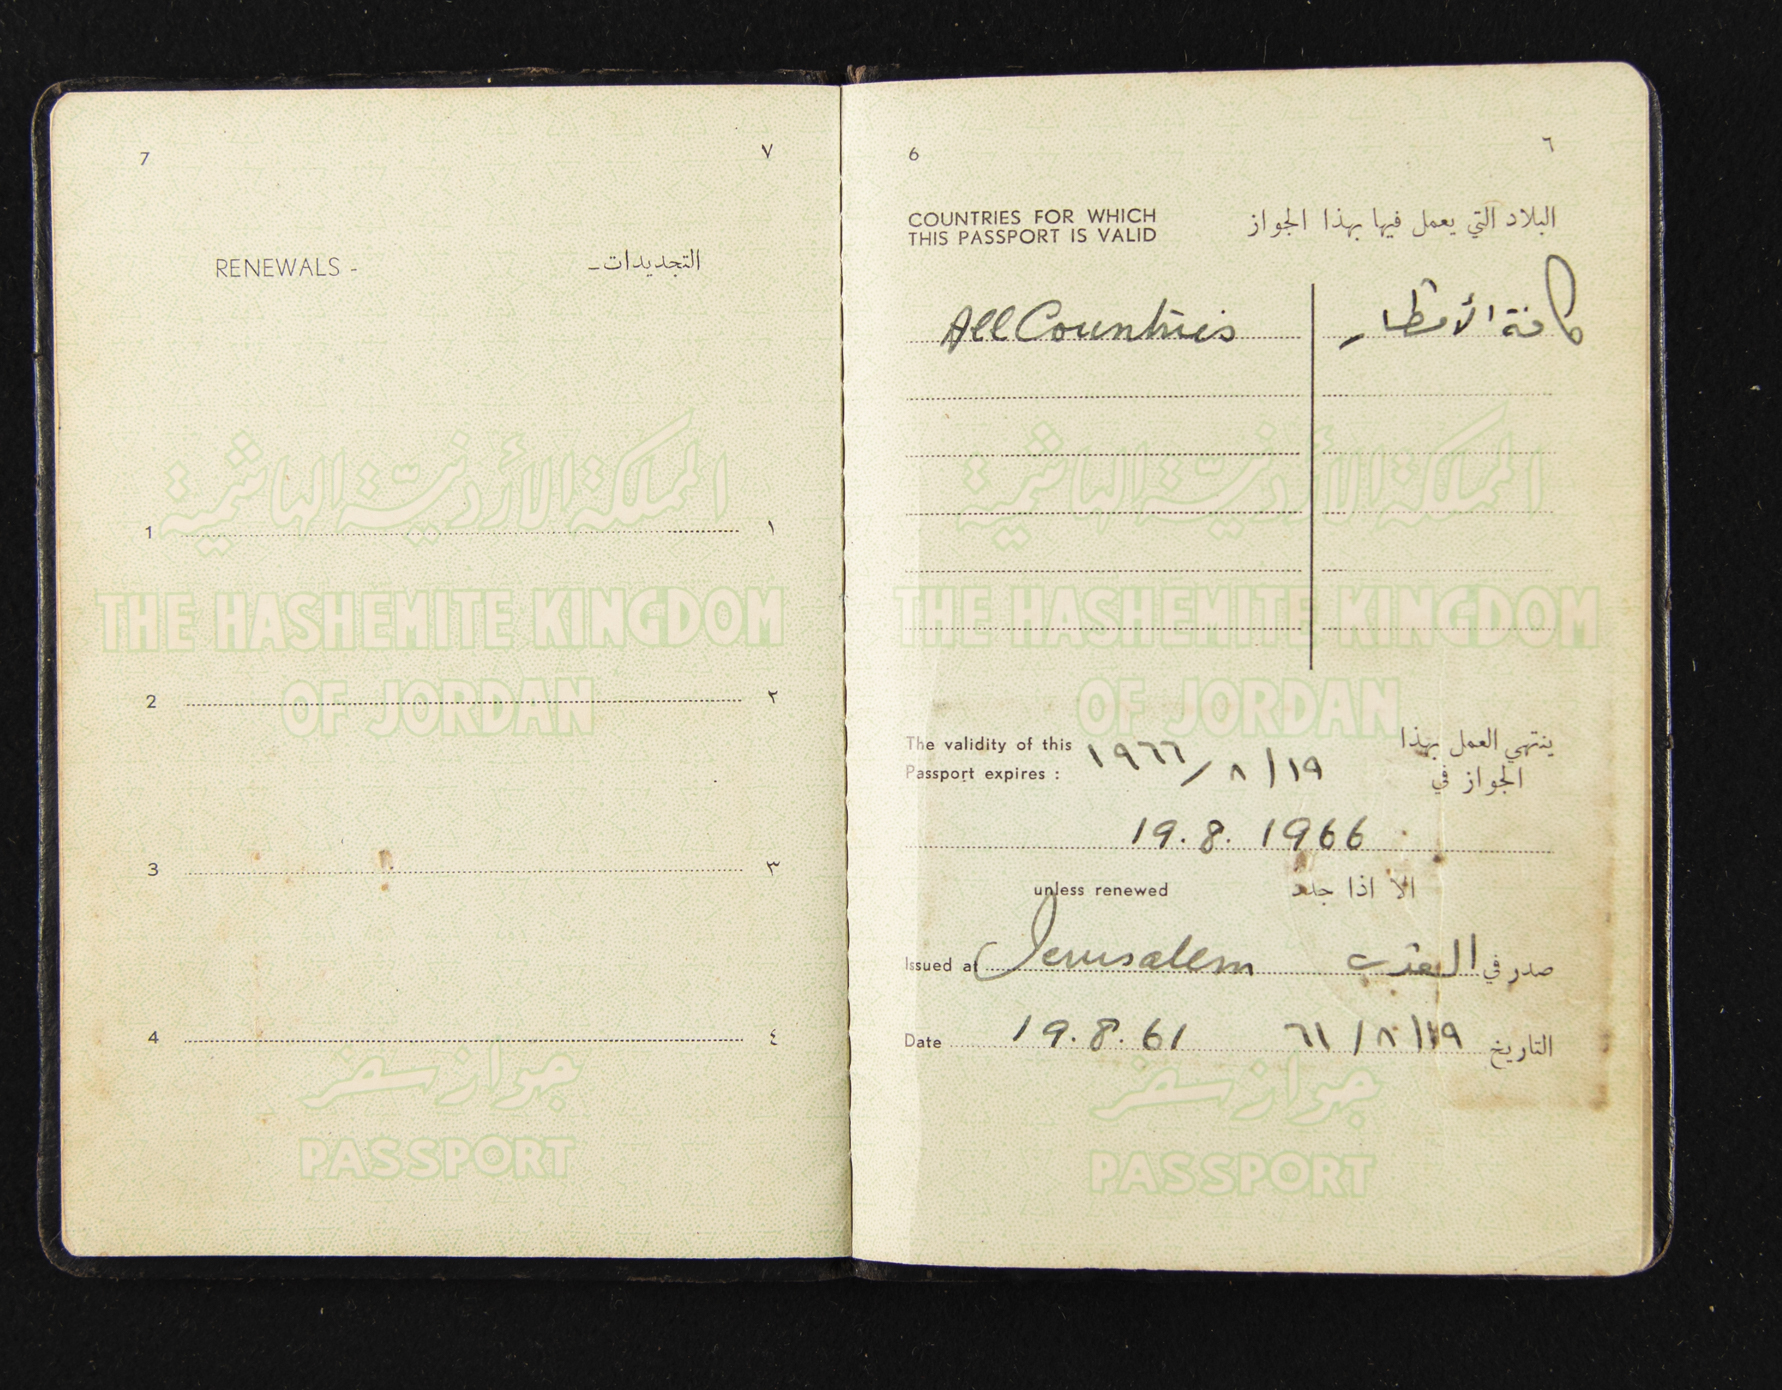 7 ٧
RENEWALS - التجديدات -
المملكة الأردنية الهاشمية
1 ١
THE HASHEMITE KINGDOM
OF JORDAN
2 ٢
3 ٣
4 ٤
جواز سفر
PASSPORT
6 ٦
COUNTRIES FOR WHICH
THIS PASSPORT IS VALID
البلاد التي يعمل فيها بهذا الجواز
All Countries كافة الأقطار
المملكة الأردنية الهاشمية
THE HASHEMITE KINGDOM
OF JORDAN
The validity of this
Passport expires :
١٩٦٦/٨/١٩
ينتهي العمل بهذا
الجواز في
19.8.1966
unless renewed الا اذا جدد
Issued at Jerusalem صدر في القدس
Date 19.8.61 التاريخ ٦١/٨/١٩
جواز سفر
PASSPORT